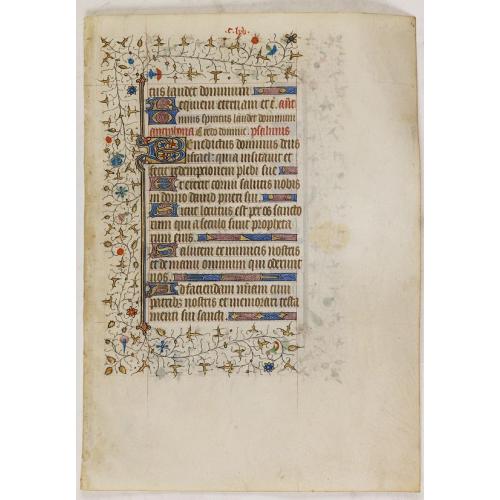 tus laudet dominum
Requiem eternam et c̄. añt
mnis spiritus laudet dominum
antiphona Credo domine. psalmus
Benedictus dominus deus
israel: quia visitauit et
fecit redempcionem plebi sue
Et erexit cornu salutis nobis
in domo dauid pueri sui
Sicut locutus est per os sancto
rum qui a seculo sunt propheta
rum eius
Salutem ex inimicis nostris
et de manu omnium qui oderunt
nos
Ad faciendam mīam cum
patribus nostris et memorari testa
menti sui sancti